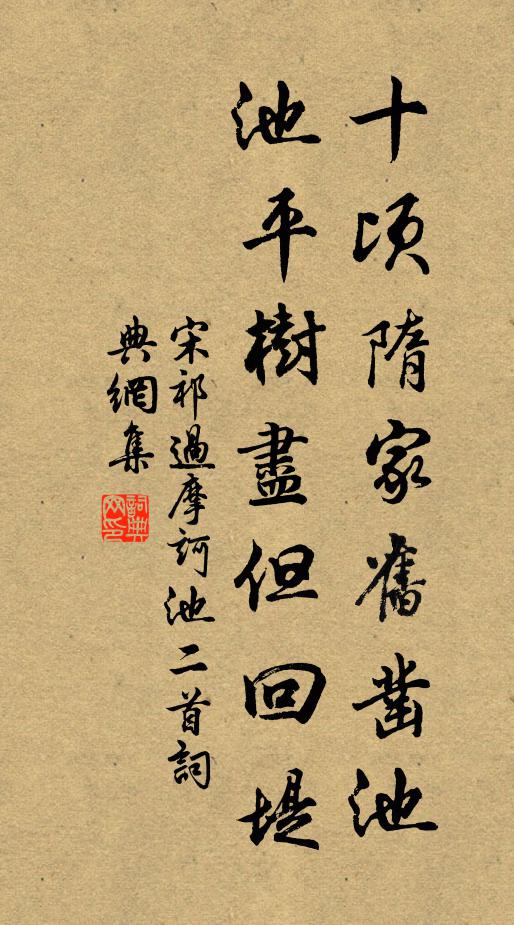 十頃隋家舊凿池
池平樹盡但回堤
宋祁過摩訶池二首詞
典網集
詞典網印